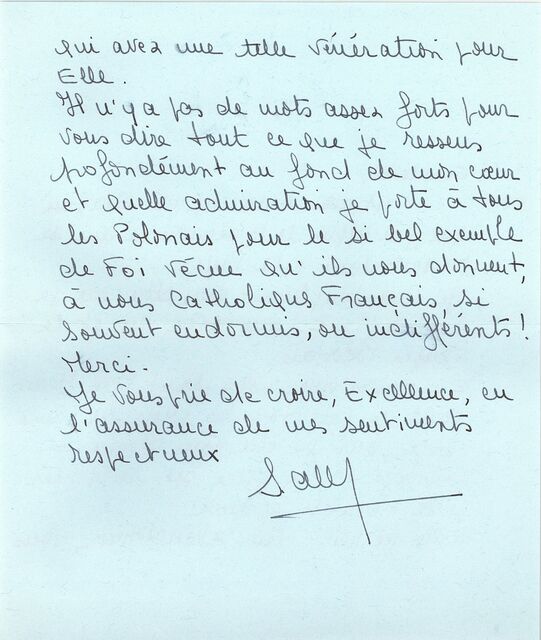 qui avez une telle vénération pour
Elle.
Il n'y a pas de mots assez forts pour
vous dire tout ce que je ressens
profondément au fond de mon cœur
et quelle admiration je porte à tous
les Polonais pour le si bel exemple
de Foi vécue qu'ils nous donnent,
à nous Catholiques Français, si
souvent endormis, ou indifférents!
Merci.
Je vous prie de croire, Excellence, en
l'assurance de mes sentiments
respectueux